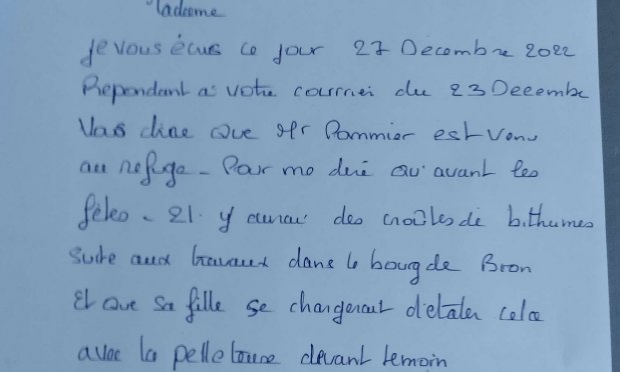 Madame
je vous écris ce jour 27 Decembre 2022
Rependant a votre courrier du 23 Decembe
Vous dire que Mr Pommier est venu
au refuge - Pour me dire qu'avant les
fêtes - Il y aurai des croûtes de bithumes
Suite aux travaux dans le bourg de Bron
Et que sa fille se chargerait d'etaler cela
avec la pelleteuse devant temoin